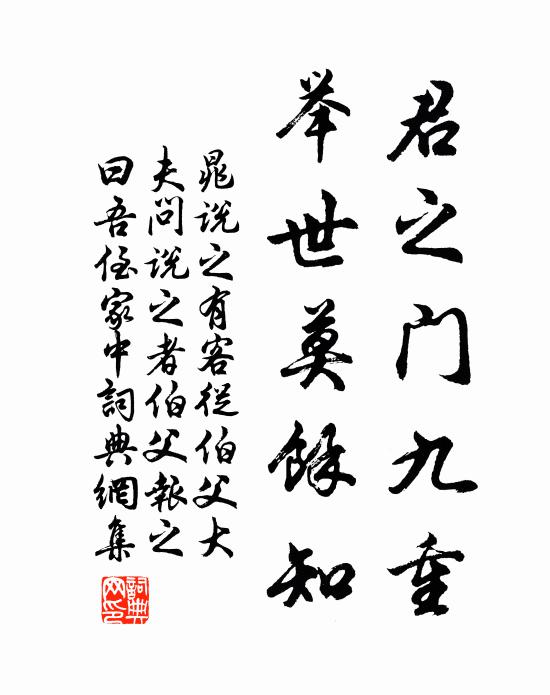 君之门九重
举世莫馀知
晁说之有客从伯父大
夫问说之者伯父报之
曰吾侄家中詞典網集
詞典網印